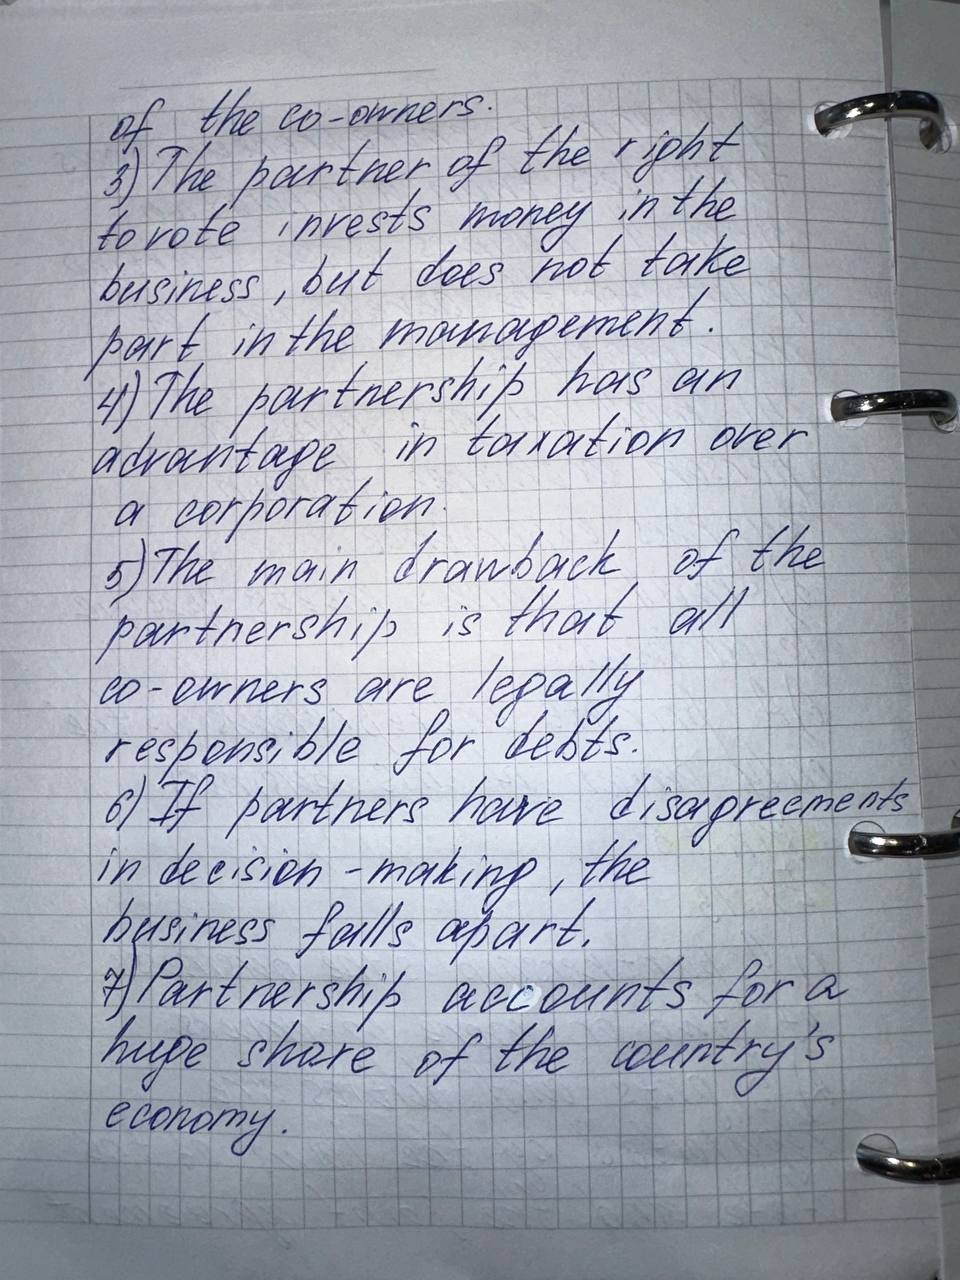 of the co-owners.
3) The partner of the right
to vote invests money in the
business, but does not take
part in the management.
4) The partnership has an
advantage in taxation over
a corporation.
5) The main drawback of the
partnership is that all
co-owners are legally
responsible for debts.
6) If partners have disagreements
in decision-making, the
business falls apart.
7) Partnership accounts for a
huge share of the country's
economy.